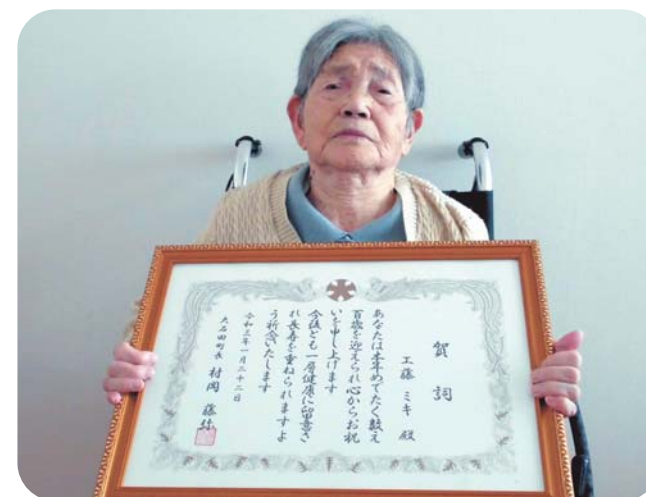 賀詞
工藤 ミキ 殿
あなたは本年めでたく数え
百歳を迎えられ心からお祝
いを申し上げます
今後とも一層健康に留意さ
れ長寿を重ねられますよ
う祈念いたします
令和三年一月二十二日
大石田町長 村岡 藤弥